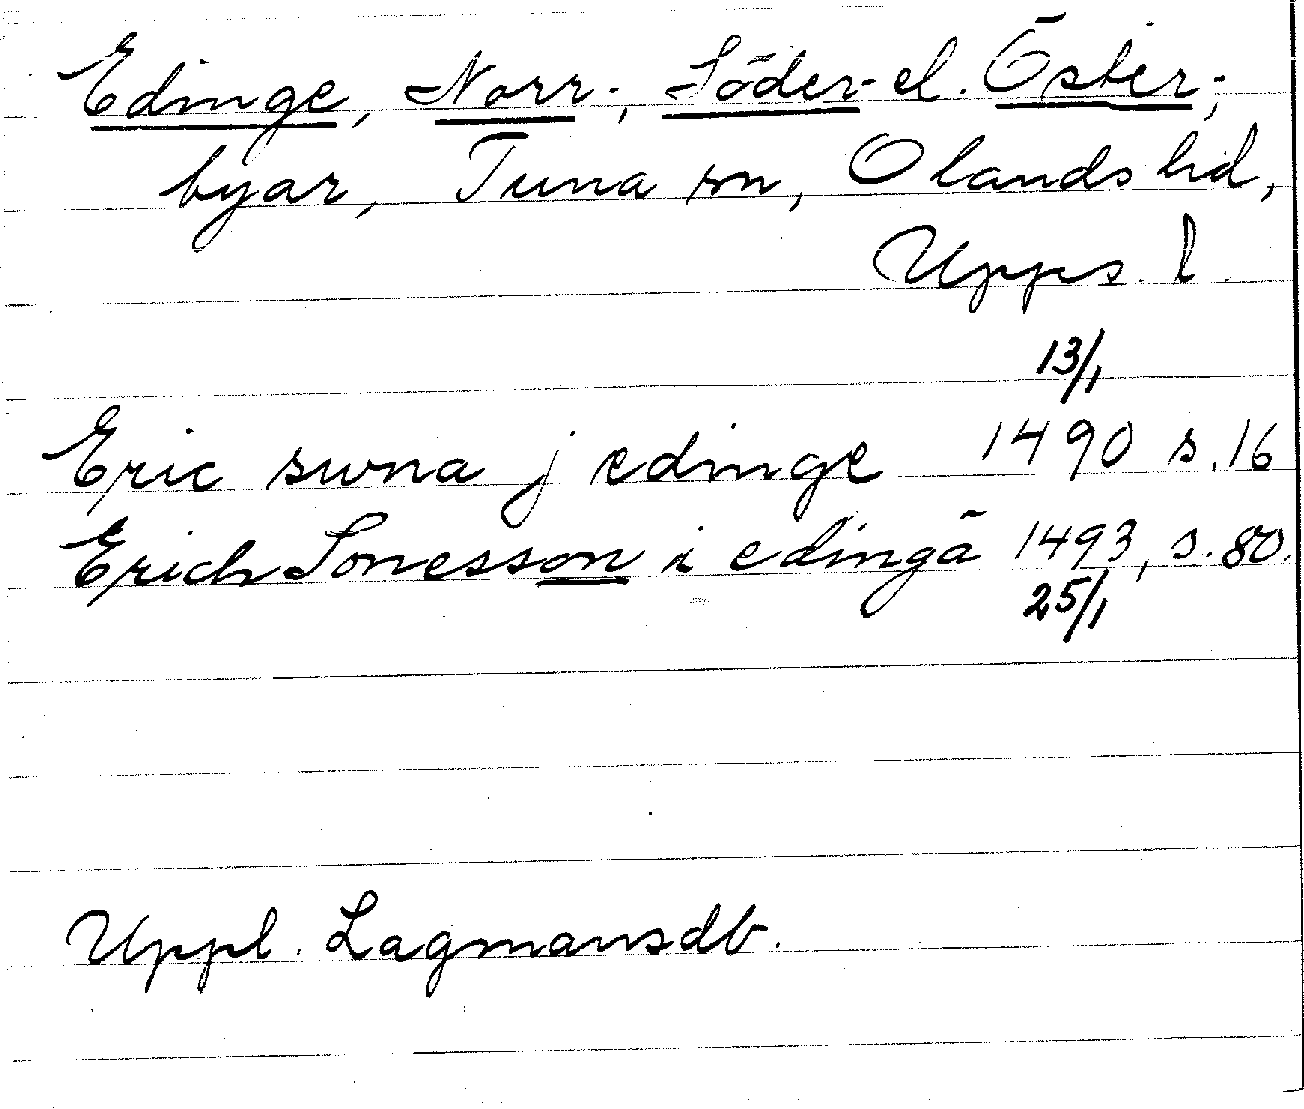 Edinge, Norr-, Söder- el. Öster-,
byar, Tuna sn, Olands hd,
Upps. l.
13/1
Eric swna j edinge 1490 s. 16
Erich Sonesson i edingä 1493, s. 80.
25/1
Uppl. Lagmansdb.